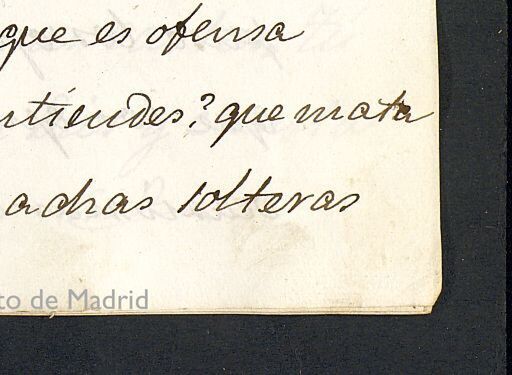 que es ofensa
ntiendes? que mata
adras solteras
to de Madrid